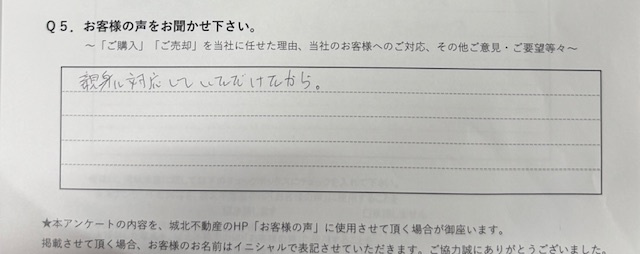 Q5．お客様の声をお聞かせ下さい。
～「ご購入」「ご売却」を当社に任せた理由、当社のお客様へのご対応、その他ご意見・ご要望等々～
親身に対応していただけたから。
★本アンケートの内容を、城北不動産のHP「お客様の声」に使用させて頂く場合が御座います。
掲載させて頂く場合、お客様のお名前はイニシャルで表記させていただきます。ご協力誠にありがとうございました。